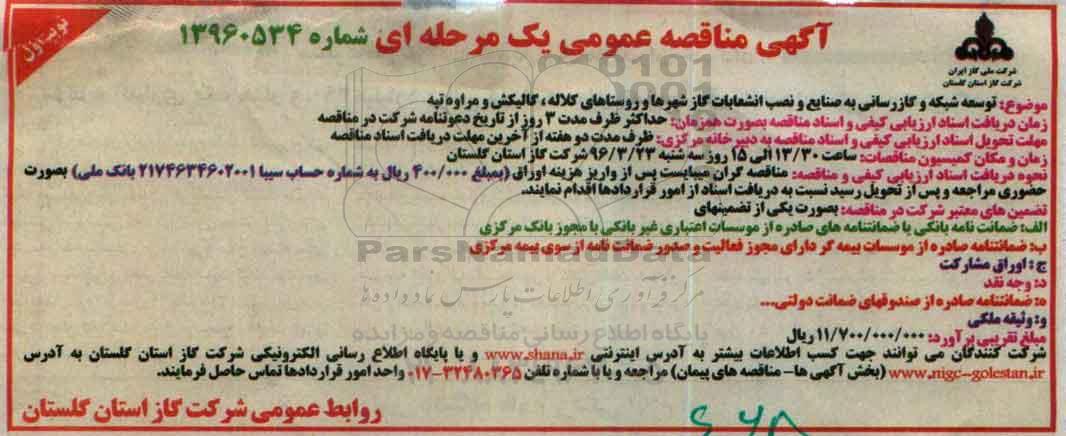 نوبت اول
آگهی مناقصه عمومی یک مرحله ای شماره ۱۳۹۶۰۵۳۴
شرکت ملی گاز ایران
شرکت گاز استان گلستان
موضوع: توسعه شبکه و گازرسانی به صنایع و نصب انشعابات گاز شهرها و روستاهای کلاله، گالیکش و مراوه تپه
زمان دریافت اسناد ارزیابی کیفی و اسناد مناقصه بصورت همزمان: حداکثر ظرف مدت ۳ روز از تاریخ دعوتنامه شرکت در مناقصه
مهلت تحویل اسناد ارزیابی کیفی و اسناد مناقصه به دبیرخانه مرکزی: ظرف مدت دو هفته از آخرین مهلت دریافت اسناد مناقصه
زمان و مکان کمیسیون مناقصات: ساعت ۱۳/۳۰ الی ۱۵ روز سه شنبه ۹۶/۳/۲۳ شرکت گاز استان گلستان
نحوه دریافت اسناد ارزیابی کیفی و اسناد مناقصه: مناقصه گران میبایست پس از واریز هزینه اوراق (بمبلغ ۴۰۰/۰۰۰ ریال به شماره حساب سیبا ۲۱۷۴۶۳۴۶۰۲۰۰۱ بانک ملی) بصورت
حضوری مراجعه و پس از تحویل رسید نسبت به دریافت اسناد از امور قراردادها اقدام نمایند.
تضمین های معتبر شرکت در مناقصه: بصورت یکی از تضمینهای
الف: ضمانت نامه بانکی یا ضمانتنامه های صادره از موسسات اعتباری غیر بانکی با مجوز بانک مرکزی
ب: ضمانتنامه صادره از موسسات بیمه گر دارای مجوز فعالیت و صدور ضمانت نامه از سوی بیمه مرکزی
ج: اوراق مشارکت
د: وجه نقد
ه: ضمانتنامه صادره از صندوقهای ضمانت دولتی...
و: وثیقه ملکی
مبلغ تقریبی برآورد: ۱۱/۷۰۰/۰۰۰/۰۰۰ ریال
شرکت کنندگان می توانند جهت کسب اطلاعات بیشتر به آدرس اینترنتی www.shana.ir و یا پایگاه اطلاع رسانی الکترونیکی شرکت گاز استان گلستان به آدرس
www.nigc-golestan.ir (بخش آگهی ها- مناقصه های پیمان) مراجعه و یا با شماره تلفن ۳۲۴۸۰۳۶۵-۰۱۷ واحد امور قراردادها تماس حاصل فرمایند.
روابط عمومی شرکت گاز استان گلستان
ParsNamadData
مرکز فرآوری اطلاعات پارس نماد داده ها
پایگاه اطلاع رسانی مناقصه و مزایده